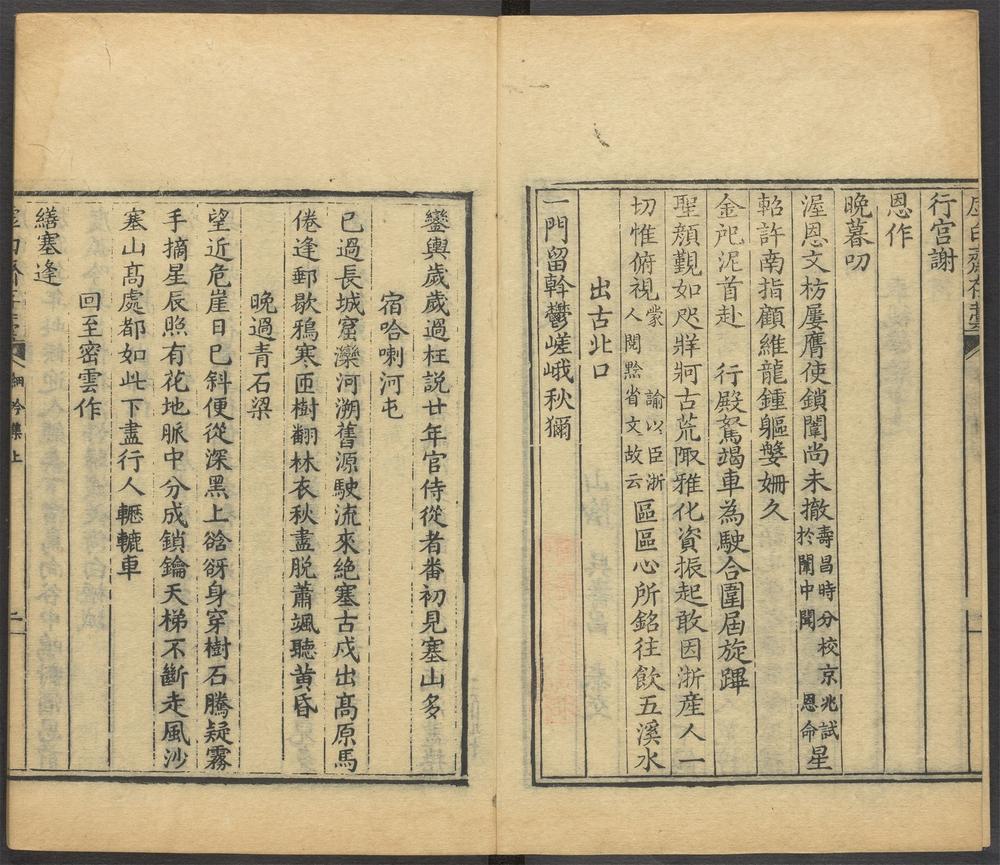 行宮謝
恩作
晚暮叨
渥恩文枋屢膺使鎖闈尚未撤壽昌時分校京兆試於闈中聞恩命星
軺許南指顧維龍鍾軀媻姍久
金戺泥首赴　行殿駕竭車為駛合圍屆旋蹕
聖顏覲如咫牂牁古荒陬雅化資振起敢因浙產人一
切惟俯視蒙諭以臣浙人閱黔省文故云區區心所銘往飲五溪水
出古北口
一門留幹鬱嵯峨秋獮
鑾輿歲歲過枉說廿年官侍從者番初見塞山多
宿哈喇河屯
已過長城窟灤河溯舊源駛流來絕塞古戍出髙原馬
倦逢郵歇鴉寒匝樹翻林衣秋盡脫蕭颯聽黄昏
晚過青石梁
望近危崖日已斜便從深黑上谽谺身穿樹石騰疑霧
手摘星辰照有花地脈中分成鎖鑰天梯不斷走風沙
塞山髙處都如此下盡行人轣轆車
回至密雲作
繕塞逢
細吟集上
二